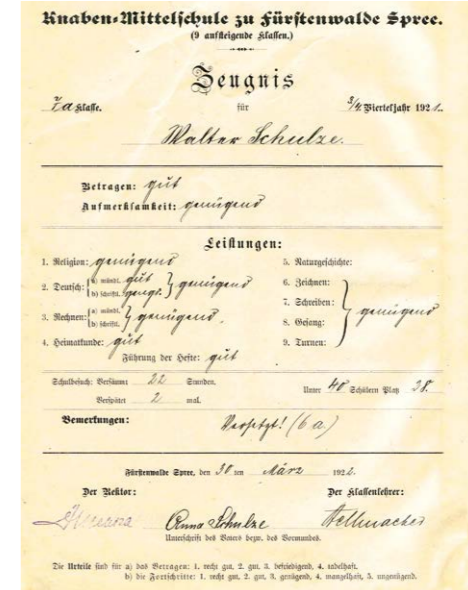 Knaben-Mittelschule zu Fürstenwalde Spree.
(9 aufsteigende Klassen.)
Zeugnis
7a Klasse. für 3/4 Vierteljahr 1921.
Walter Schulze.
Betragen: gut
Aufmerksamkeit: genügend
Leistungen:
1. Religion: genügend 5. Naturgeschichte:
2. Deutsch: a) mündl. gut b) schriftl. gengd. genügend 6. Zeichnen:
7. Schreiben: genügend
3. Rechnen: a) mündl. b) schriftl. genügend. 8. Gesang:
4. Heimatkunde: gut 9. Turnen:
Führung der Hefte: gut
Schulbesuch: Versäumt 22 Stunden. Unter 40 Schülern Platz 38.
Verspätet 2 mal.
Bemerkungen: Versetzt! (6 a.)
Fürstenwalde Spree, den 30 ten März 1922.
Der Rektor: Der Klassenlehrer:
Anna Schulze Hellmacher
Unterschrift des Vaters bezw. des Vormundes.
Die Urteile sind für a) das Betragen: 1. recht gut, 2. gut, 3. befriedigend, 4. tadelhaft.
b) die Fortschritte: 1. recht gut, 2. gut, 3. genügend, 4. mangelhaft, 5. ungenügend.